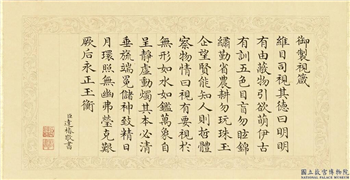 御製視箴
維目司視其德曰明明
有由蔽物引欲萌伊古
有訓五色目盲勿眩錦
繡勤省農耕勿玩珠玉
企望賢能知人則哲體
察物情曰視有要視於
無形如水如鑑萬象自
呈靜虛動燭其本必清
垂旒端冕儲神致精日
月環照無幽弗瑩克艱
厥后永正玉衡
臣達椿敬書
國立故宮博物院
NATIONAL PALACE MUSEUM